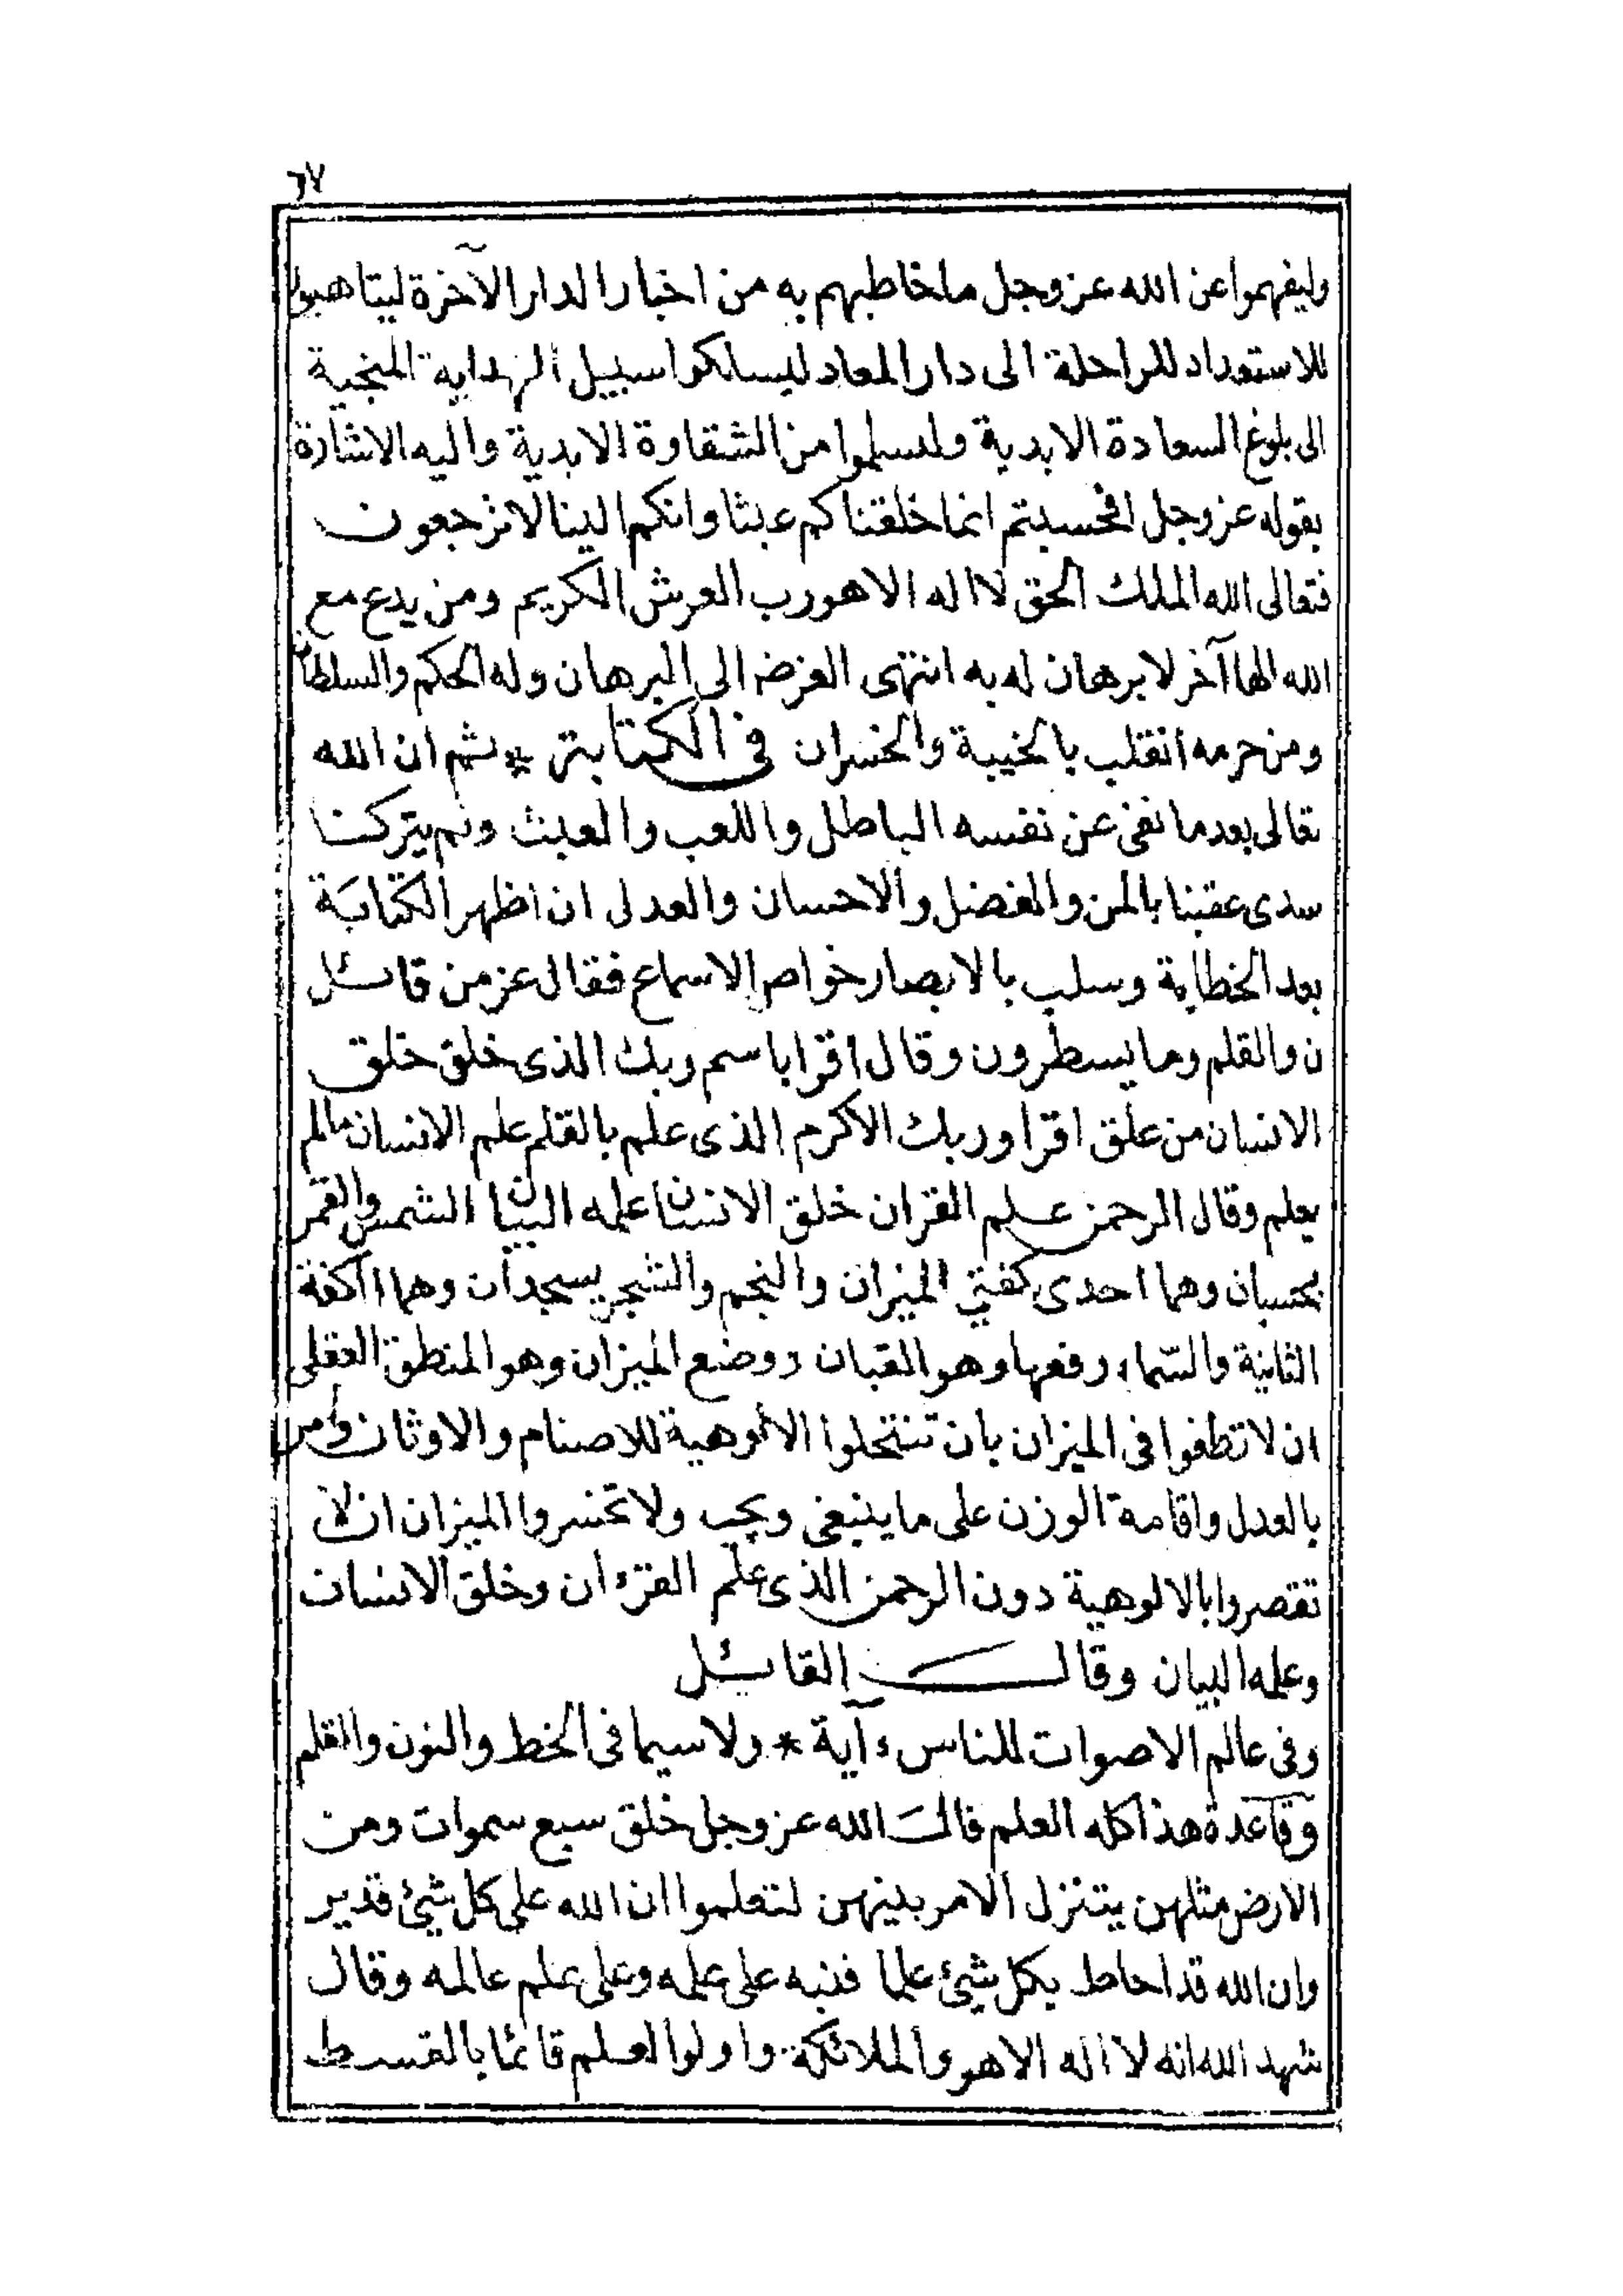 ٦٧
وليفهموا عن الله عز وجل ما خاطبهم به من اخبار الدار الآخرة ليتاهبوا
للاستعداد للراحلة الى دار المعاد ليسلكوا سبيل الهداية المنجية
الى بلوغ السعادة الابدية وليسلموا من الشقاوة الابدية واليه الاشارة
بقوله عز وجل افحسبتم انما خلقناكم عبثا وانكم الينا لا ترجعون
فتعالى الله الملك الحق لا اله الا هو رب العرش الكريم ومن يدع مع
الله الها آخر لا برهان له به انتهى الغرض الى البرهان وله الحكم والسلطان
ومن حرمه انقلب بالخيبة والخسران فى الكتابة * ثم ان الله
تعالى بعد ما نفى عن نفسه الباطل واللعب والعبث ولم يتركنا
سدى عقبنا بالمن والفضل والاحسان والعدل ان اظهر الكتابة
بعد الخطابة وسلب بالابصار خواص الاسماع فقال عز من قائل
ن والقلم وما يسطرون وقال اقرا باسم ربك الذى خلق خلق
الانسان من علق اقرا وربك الاكرم الذى علم بالقلم علم الانسان مالم
يعلم وقال الرحمن علم القران خلق الانسان علمه البيان الشمس والقمر
بحسبان وهما احدى كفتي الميزان والنجم والشجر يسجدان وهما اكفة
الثانية والسّماء رفعها وهو القبان ووضع الميزان وهو المنطق العقلى
ان لا تطغوا فى الميزان بان تنتحلوا الالوهية للاصنام والاوثان وامر
بالعدل واقامة الوزن على ما ينبغى ويجب ولا تخسروا الميزان ان لا
تقصروا بالالوهية دون الرحمن الذى علم القرءان وخلق الانسان
وعلمه البيان وقال القائل
وفى عالم الاصوات للناس ءآية * ولاسيما فى الخط والنون والقلم
وقاعدة هذا كله العلم قال الله عز وجل خلق سبع سموات ومن
الارض مثلهن يتنزل الامر بينهن لتعلموا ان الله على كل شيئ قدير
وان الله قد احاط بكل شيئ علما فنبه على علمه وعلى علم عالمه وقال
شهد الله انه لا اله الا هو والملائكة واولوا العلم قائما بالقسط